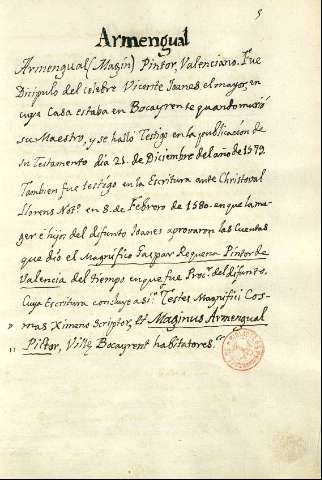 5
Armengual
Armengual (Magin) Pintor, Valenciano. Fue
Dicipulo del celebre Vicente Joanes el mayor, en
cuya Casa estaba en Bocayrente quando murió
su Maestro, y se halló Testigo en la publicacion de
su Testamento dia 21. de Diciembre del año de 1579.
Tambien fue testigo en la Escritura ante Christoval
Llorens Notº. en 8. de Febrero de 1580. en que la mu-
ger è hijos del difunto Joanes aprovaron las Cuentas
que dió el Magnifico Gaspar Requena Pintor de
Valencia del tiempo en que fue Procr. del difunto.
Cuya Escritura concluye asi: Testes Magnifici Cos-
" mas Ximeno Scriptor, et Maginus Armengual
" Pictor, Ville Bocayrent habitatores."